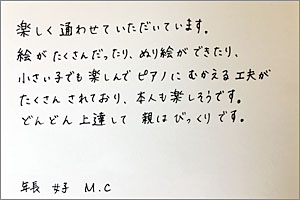 楽しく通わせていただいています。
絵がたくさんだったり、ぬり絵ができたり、
小さい子でも楽しんでピアノにむかえる工夫が
たくさんされており、本人も楽しそうです。
どんどん上達して親はびっくりです。
年長 女子 M.C